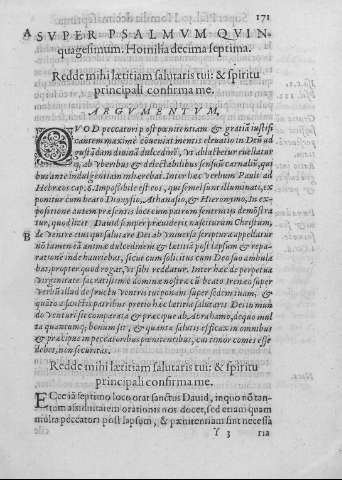 171
A SVPER PSALMVM QVIN
quagesimum. Homilia decima septima.
Redde mihi lætitiam salutaris tui: & spiritu
principali confirma me.
ARGVMENTVM.
QVOD peccatori post pœnitentiam & gratiã iustifi
cantem maximè conueniat mentis eleuatio in Deũ ad
gustãdam diuinã dulcedinẽ, vt ab illectu reuellatur
ab vberibus & delectabilibus sensuũ carnaliũ, qui
bus ante indulgentiam inhærebat. Inter hæc verbum Pauli ad
Hebræos cap. 6. Impossibile est eos, qui semel sunt illuminati, ex
ponitur cum beato Dionysio, Athanasio, & Hieronymo. In ex-
positione autem præsentis loci cum patrum sententiis demõstra
tur, quòd licet Dauid semper crederet nasciturum Christum,
B de ventre eius qui salutare Dei ab vniuersa scriptura appellatur
nõ tamen eã animæ dulcedinem & lætitiã post lapsum & repa-
rationẽ inde hauriebat, sicut cum sollicitus cum Deo suo ambula
bat, propter quod rogat, vt sibi reddatur. Inter hæc de perpetua
virginitate sacratissimæ dominæ nostræ cũ beato Irenæo super
verbis illud de fructu ventris tui ponam super sedem tuam, &
quàto à sanctis patribus pretio hæc lætitia salutaris Dei in mun
do venturi sit comparata & præcipuè ab Abrahamo, deque mul
ta quantumq; bonum sit, & quantæ salutis efficax in omnibus
& præcipuè in peccatoribus pœnitentibus, cui timor comes esse
debet, non securitas.
Redde mihi lætitiam salutaris tui: & spiritu
principali confirma me.
ECce iã septimo loco orat sanctus Dauid, in quo nõ tan-
tum assiduitatem orationis nos docet, sed etiam quàm
multa peccatori post lapsum, & pœnitentiam sint necessa
Y 3 ria